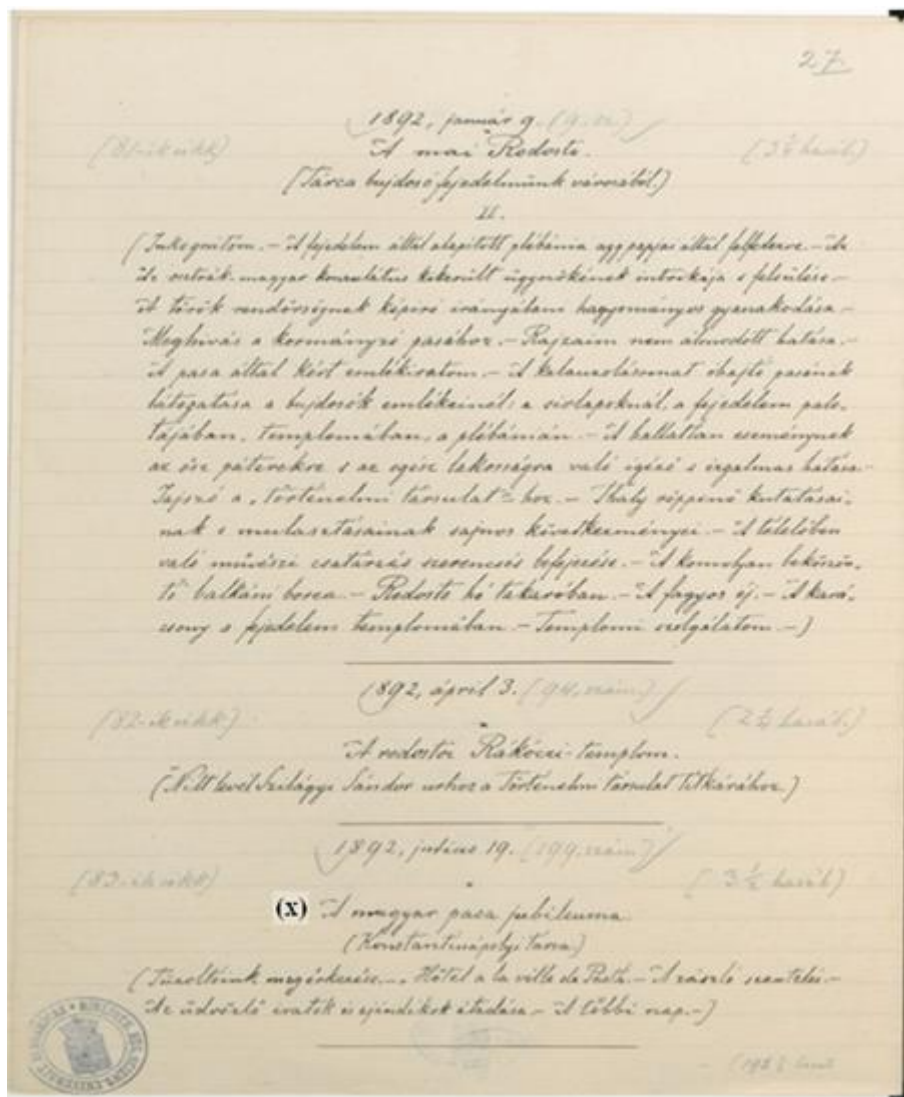 27.
1892, január 9. (9. sz.)
(81-ik cikk)
A mai Rodosto.
(3½ hasáb.)
(Tárca bujdosó fejedelmünk városából.)
II.
(Inkognitóm. – A fejedelem által alapított plébánia agg papjai által felfedezve. – Az
osztrák-magyar konzulátus kikerült ügynökének intrikája s felsülése. –
A török rendőrségnek képíró irányában hagyományos gyanakodása. –
Meghívás a kormányzó pasához. – Rajzaim nem álmodott hatása. –
A pasa által kért emlékiratom. – A kalauzolásomat óhajtó pasának
látogatása a bujdosók emlékeinél: a sírlapoknál, a fejedelem palo-
tájában, templomában, a plébánián. – A hallatlan eseménynek
az ősz páterekre s az egész lakosságra való igéző s irgalmas hatása. –
Jajszó a „történelmi társulat"-hoz. – Thaly röppenő kutatásai-
nak s mulasztásainak sajnos következményei. – A télelőben
való művészi csatározás szerencsés befejezése. – A komolyan beköszön-
tő balkáni borea. – Rodosto hó takaróban. – A fagyos éj. – A kará-
csony a fejedelem templomában. – Templomi szolgálatom. –)
1892, ápril 3. (94. szám)
(82-ik cikk)
(2¼ hasáb.)
A rodostói Rákóczi-templom.
(Nilt levél Szilágyi Sándor urhoz a Történelmi társulat titkárához.)
1892, julius 19. (199. szám)
(83-ik cikk)
(3½ hasáb)
(x) A magyar pasa jubileuma.
(Konstantinápolyi tárca.)
(Tűzoltóink megérkezése. – Hôtel a la ville de Pesth. – A zászló szentelés. –
Az üdvözlő iratok és ajándékok átadása. – A többi nap. –)